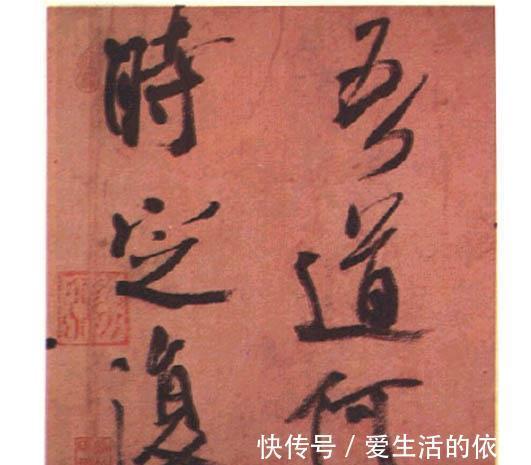 吾道何
時定復
快传号 / 爱生活的依